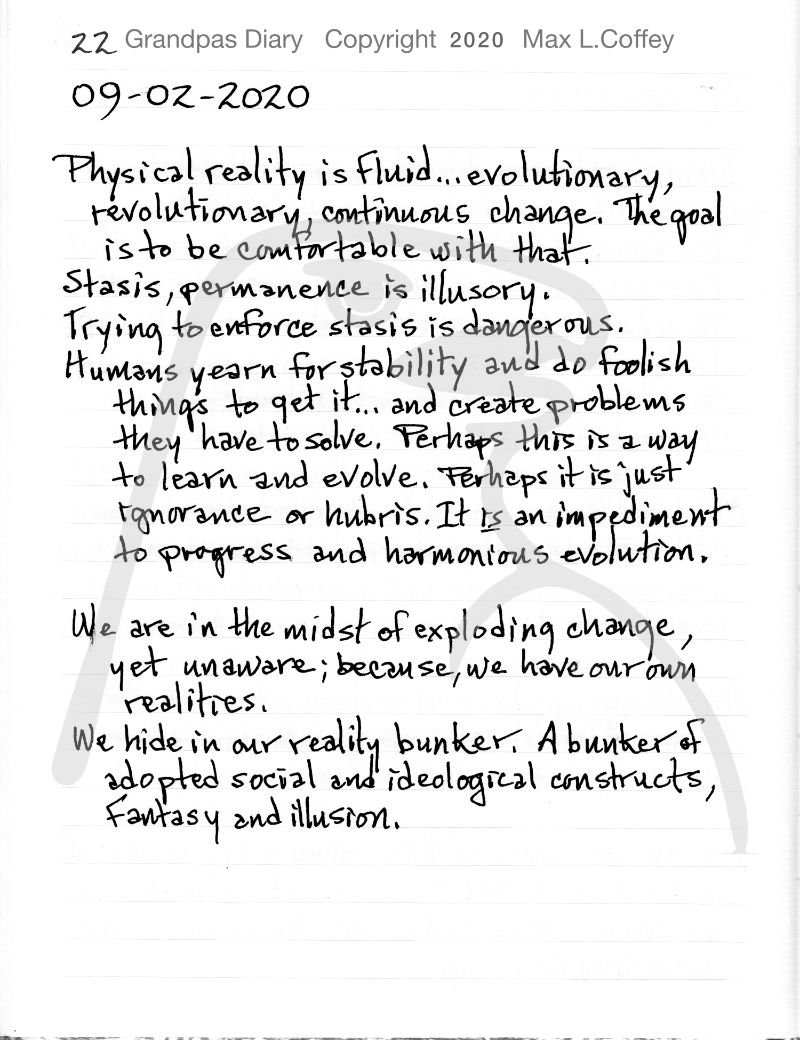 22 Grandpas Diary Copyright 2020 Max L.Coffey
09-02-2020
Physical reality is fluid...evolutionary,
revolutionary, continuous change. The goal
is to be comfortable with that.
Stasis, permanence is illusory.
Trying to enforce stasis is dangerous.
Humans yearn for stability and do foolish
things to get it... and create problems
they have to solve. Perhaps this is a way
to learn and evolve. Perhaps it is just
ignorance or hubris. It is an impediment
to progress and harmonious evolution.
We are in the midst of exploding change,
yet unaware; because, we have our own
realities.
We hide in our reality bunker. A bunker of
adopted social and ideological constructs,
fantasy and illusion.